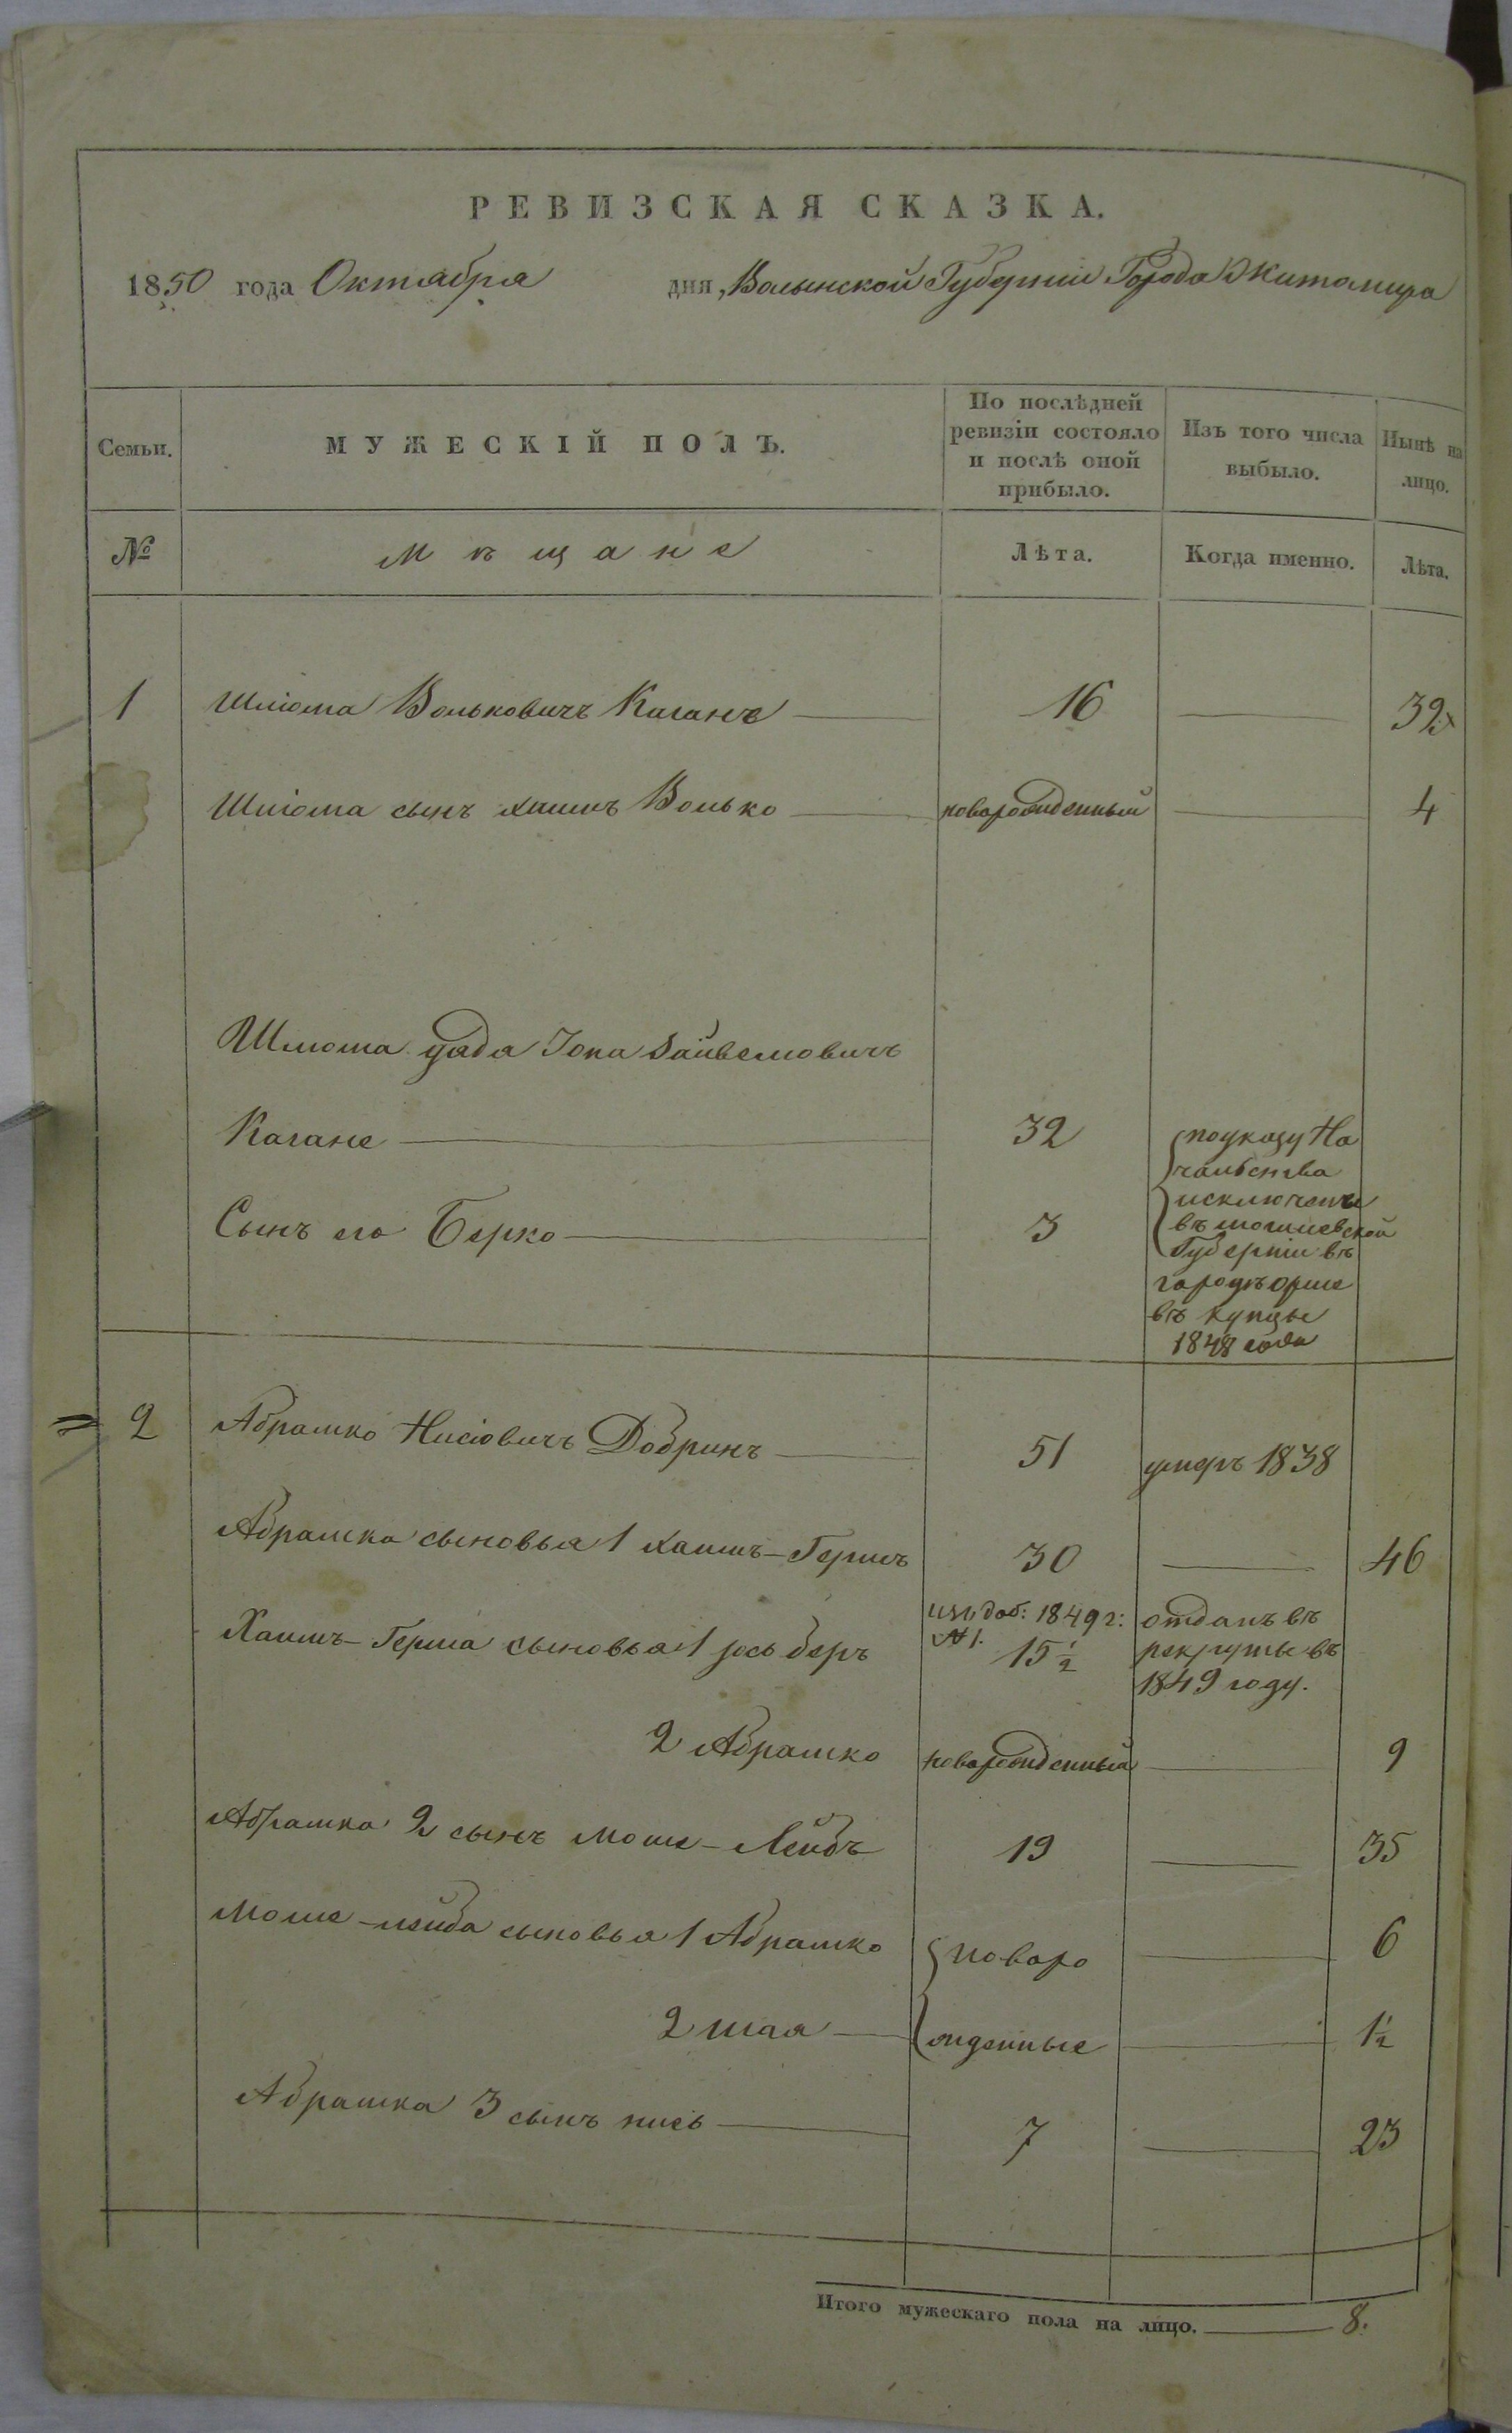 РЕВИЗСКАЯ СКАЗКА.
1850 года Октября дня, Волынской Губернии Города Житомира
Семьи. МУЖЕСКІЙ ПОЛЪ. По послѣдней ревизіи состояло и послѣ оной прибыло. Изъ того числа выбыло. Нынѣ на лицо.
№ Мѣщане Лѣта. Когда именно. Лѣта.
1 Шліома Вольковичъ Кагане 16 32
Шліома сынъ хаимъ Волько новорожденный 4
Шліома дядя Іона Зайвеловичъ
Кагане 32
Сынъ его Берко 3
по указу На
чальства
исключены
въ могилевской
Губерніи въ
городѣ орше
въ купцы
1848 года
2 Абрашко Нисіовичъ Добринъ 51 умеръ 1838
Абрашка сыновья 1 хаимъ-Гершъ 30 46
Хаимъ-Герша сыновья 1 Іось беръ изъ доб: 1849 г: №1. 15 1/2 отданъ въ
рекруты въ
1849 году.
2 Абрашко новорожденный 9
Абрашка 2 сынъ Моше-Лейбъ 19 35
Моше-лейба сыновья 1 Абрашко новоро 6
2 шая жденные 1 1/2
Абрашка 3 сынъ нись 7 23
Итого мужескаго пола на лицо. 8.